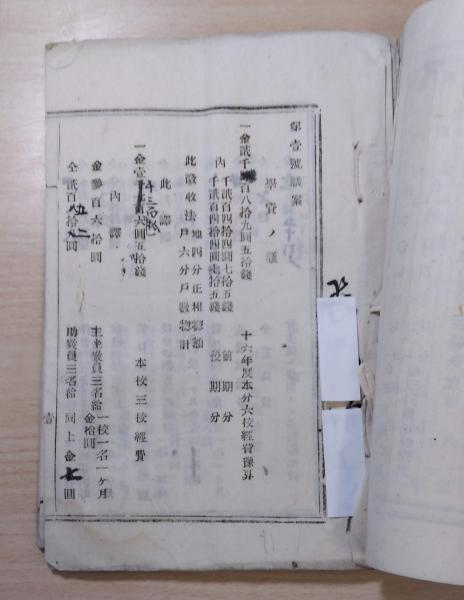 第壹號議案
學費ノ議
一金貳千百八拾九圓五拾錢 十六年度本分六校經費豫算
內 千貳百四拾四圓七拾五錢 前期分
千貳百四拾四圓七拾五錢 後期分
此徵收法 地四分正租惣額 戶六分戶數惣計
此譯
一金壹千百六圓五拾錢 本校三校經費
內譯
金參百六拾圓 主坐敎員三名給 一校一名一ヶ月金拾圓
仝貳百五拾二圓 助敎員三名給 同上金七圓
壹